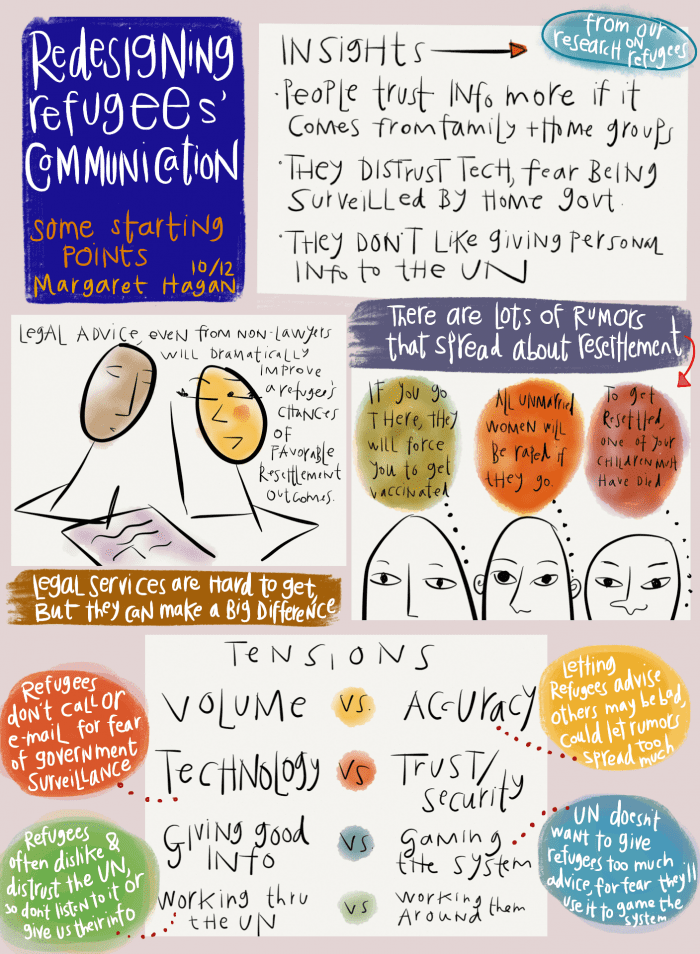 Redesigning
refugees'
Communication
some starting
points
10/12
Margaret Hagan
from our
research on
refugees
Insights
· People trust info more if it
comes from family + home groups
· They distrust tech, fear being
surveilled by home govt.
· They don't like giving personal
info to the UN
Legal advice, even from non-lawyers
will dramatically
improve
a refugee's
chances
of
favorable
resettlement
outcomes.
Legal services are hard to get,
But they can make a big difference
There are lots of rumors
that spread about resettlement
If you go
there, they
will force
you to get
vaccinated
All unmarried
women will
be raped if
they go.
To get
resettled,
one of your
children must
have died
Tensions
Volume vs. Accuracy
Technology vs Trust/
security
Giving good
info
vs
gaming
the system
working thru
the UN
vs
working them
around
Refugees
don't call or
e-mail for fear
of government
surveillance
Letting
refugees advise
others may be bad,
could let rumors
spread too
much
Refugees
often dislike &
distrust the UN,
so don't listen to it or
give us their info
UN doesn't
want to give
refugees too much
advice, for fear they'll
use it to game the
system